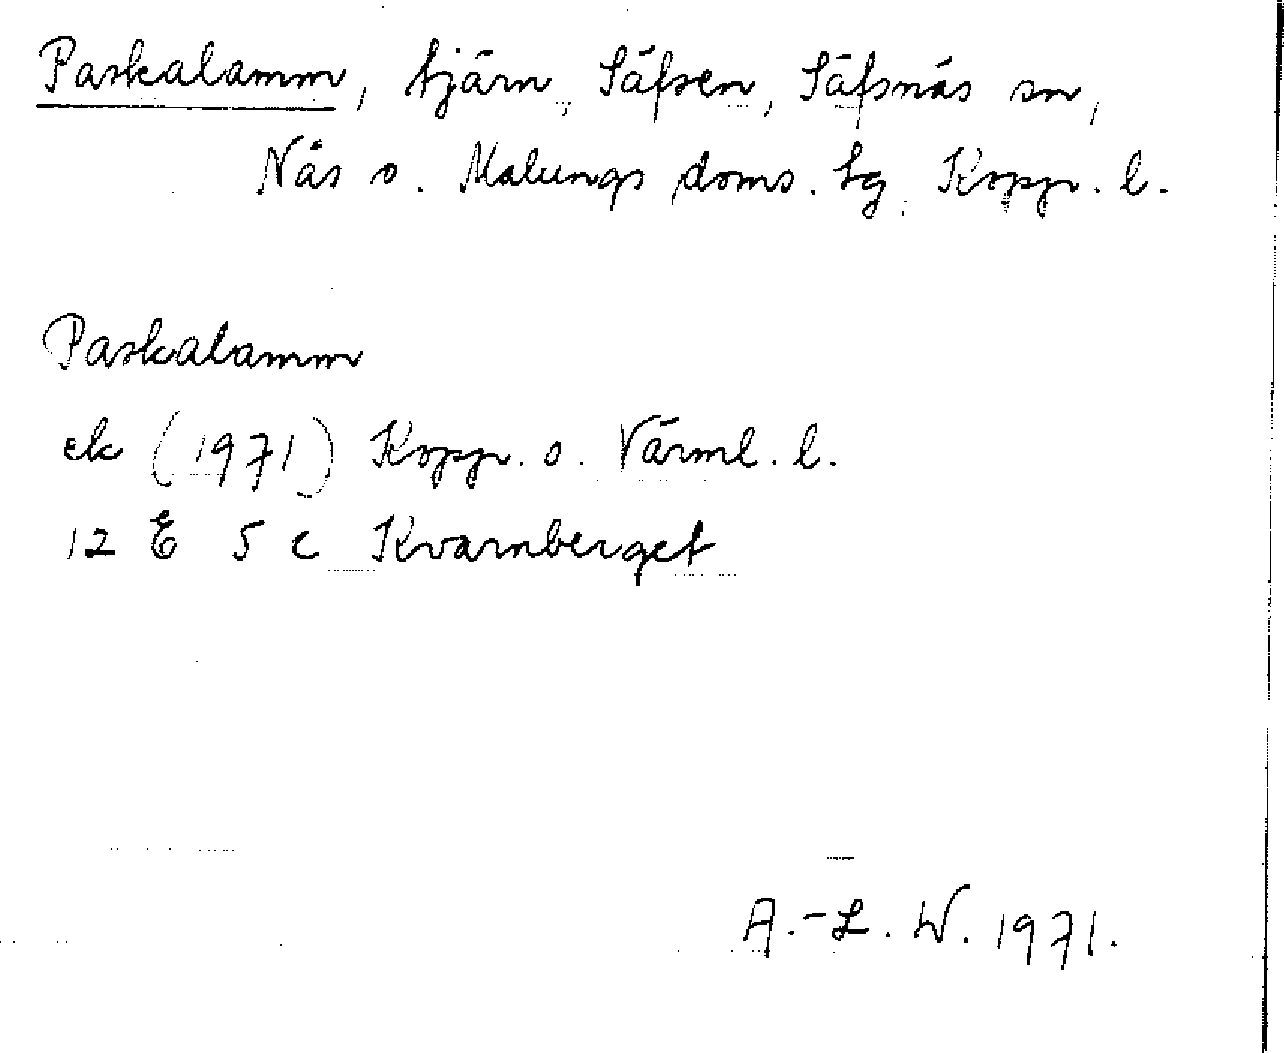 Paskalamm, tjärn, Säfsen, Säfsnäs sn,
Näs o. Malungs doms. tg, Kopp. l.
Paskalamm
ek (1971) Kopp. o. Värml. l.
12 E 5 c Kvarnberget
A.-L. W. 1971.